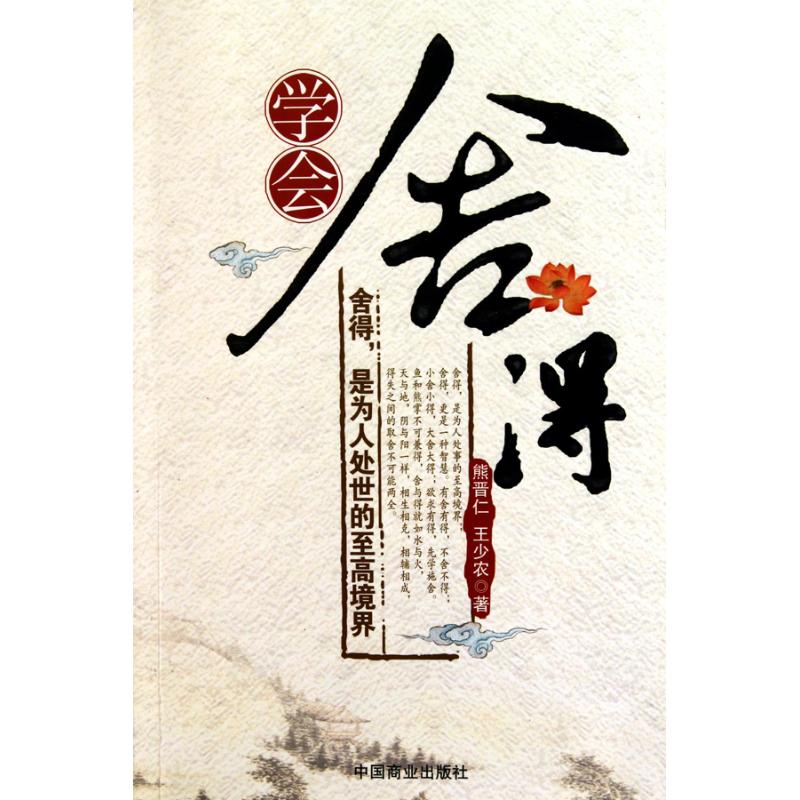 学会
舍得
舍得，是为人处世的至高境界
舍得，是为人处事的至高境界；
舍得，更是一种智慧。有舍有得，不舍不得；
小舍小得，大舍大得；欲求有得，先学施舍。
鱼和熊掌不可兼得，舍与得就如水与火，
天与地，阴与阳一样，相生相克，相辅相成，
得失之间的取舍不可能两全。
熊晋仁 王少农◎著
中国商业出版社